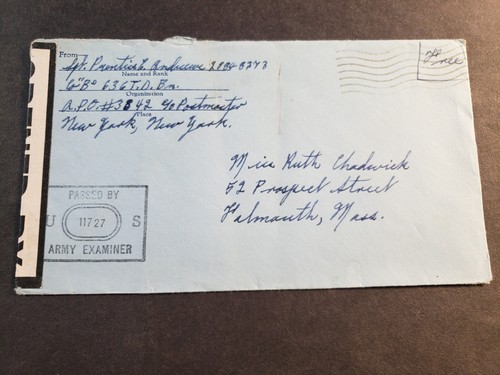 From Sgt. Prentis E. Andrews
Name and Rank
"B" 636 T.D. Bn.
Organization
A.P.O. #3842 c/o Postmaster
Place
New York, New York.
Free
Miss Ruth Chadwick
52 Prospect Street
Falmouth, Mass.
PASSED BY
U 11727 S
ARMY EXAMINER